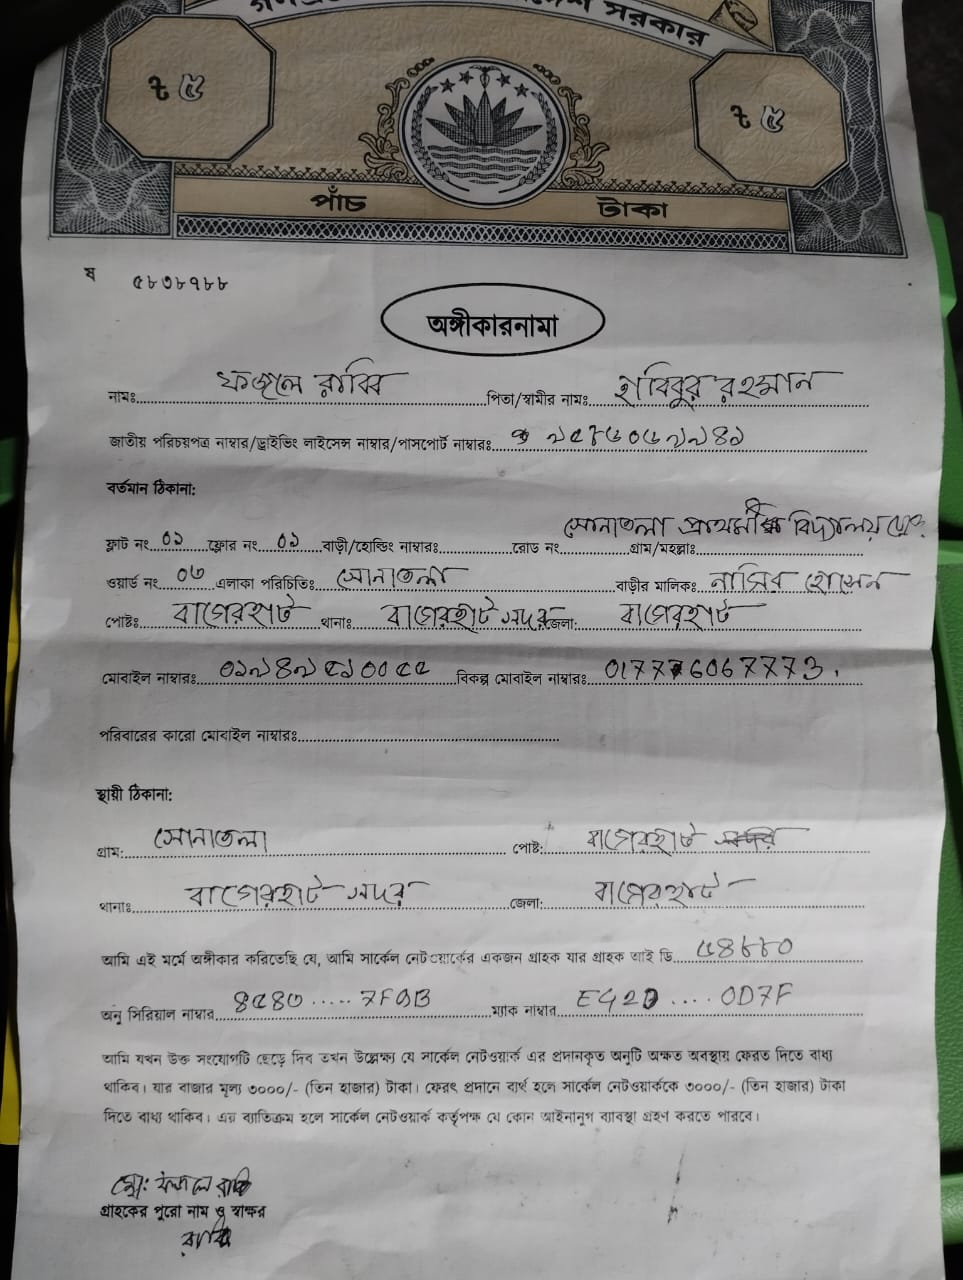 সরকার
৳ ৫ ৳ ৫
পাঁচ টাকা
ষ ৫৮৩৮৭৮৮
অঙ্গীকারনামা
নামঃ ফজলে রাব্বি পিতা/স্বামীর নামঃ হাবিবুর রহমান
জাতীয় পরিচয়পত্র নাম্বার/ড্রাইভিং লাইসেন্স নাম্বার/পাসপোর্ট নাম্বারঃ
বর্তমান ঠিকানা:
সোনাতলা প্রাথমিক বিদ্যালয়
ফ্লাট নং ০১ ফ্লোর নং ০১ বাড়ী/হোল্ডিং নাম্বারঃ রোড নং গ্রাম/মহল্লাঃ
ওয়ার্ড নং ০৬ এলাকা পরিচিতিঃ সোনাতলা বাড়ীর মালিকঃ নাসির হোসেন
পোষ্টঃ বাগেরহাট থানাঃ বাগেরহাট সদর জেলা: বাগেরহাট
মোবাইল নাম্বারঃ বিকল্প মোবাইল নাম্বারঃ
পরিবারের কারো মোবাইল নাম্বারঃ
স্থায়ী ঠিকানা:
গ্রাম: সোনাতলা পোষ্ট: বাগেরহাট
থানাঃ বাগেরহাট সদর জেলা: বাগেরহাট
আমি এই মর্মে অঙ্গীকার করিতেছি যে, আমি সার্কেল নেটওয়ার্কের একজন গ্রাহক যার গ্রাহক আই ডি ৬৪৮৮০
অনু সিরিয়াল নাম্বার ম্যাক নাম্বার
আমি যখন উক্ত সংযোগটি ছেড়ে দিব তখন উল্লেক্ষ্য যে সার্কেল নেটওয়ার্ক এর প্রদানকৃত অনুটি অক্ষত অবস্থায় ফেরত দিতে বাধ্য
থাকিব। যার বাজার মূল্য ৩০০০/- (তিন হাজার) টাকা। ফেরৎ প্রদানে ব্যর্থ হলে সার্কেল নেটওয়ার্ককে ৩০০০/- (তিন হাজার) টাকা
দিতে বাধ্য থাকিব। এর ব্যাতিক্রম হলে সার্কেল নেটওয়ার্ক কর্তৃপক্ষ যে কোন আইনানুগ ব্যাবস্থা গ্রহণ করতে পারবে।
মো: ফজলে রাব্বি
গ্রাহকের পুরো নাম ও স্বাক্ষর
রাব্বি